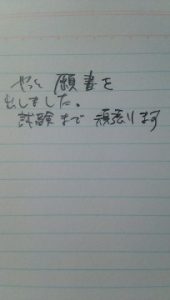 やっと 願書を
出しました。
試験まで 頑張ります